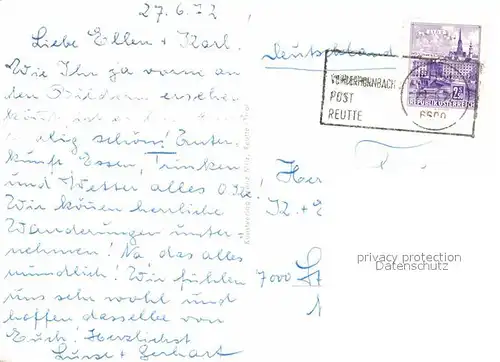 27.6.72
Liebe Ellen + Karl.
Wie Ihr ja vorne an
den Bildern ersehen
könnt ist es
schön! Unter-
kunft Essen, Trinken
und Wetter alles O.K.!
Wir können herrliche
Wanderungen unter-
nehmen! Na, das alles
mündlich! Wir fühlen
uns sehr wohl und
hoffen dasselbe von
Euch! Herzlichst
Luise + Gerhart
Deutschland
VORDERHORNBACH
POST
REUTTE
6600
REPUBLIK ÖSTERREICH
Herr
K. + E
7000 St
privacy protection
Datenschutz